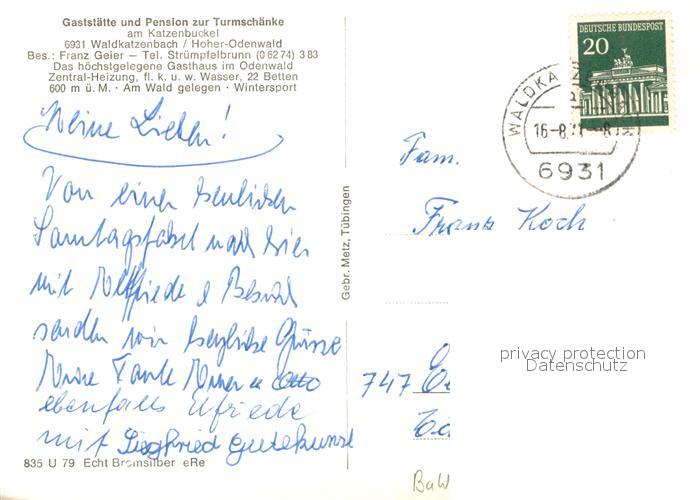 Gaststätte und Pension zur Turmschänke
am Katzenbuckel
6931 Waldkatzenbach / Hoher-Odenwald
Bes.: Franz Geier — Tel. Strümpfelbrunn (0 62 74) 3 83
Das höchstgelegene Gasthaus im Odenwald
Zentral-Heizung, fl. k. u. w. Wasser, 22 Betten
600 m ü. M. · Am Wald gelegen · Wintersport
Meine Lieben!
Von einer herrlichen
Samstagsfahrt nach hier
mit Elfriede
senden wir herzliche Grüsse
Meine Tante
ebenfalls Elfriede
mit Siegfried Gutekunst
835 U 79 Echt Bromsilber eRe
Gebr. Metz, Tübingen
DEUTSCHE BUNDESPOST
20
WALDKA
16-8.
6931
Fam.
Franz Koch
747
privacy protection
Datenschutz
BaW